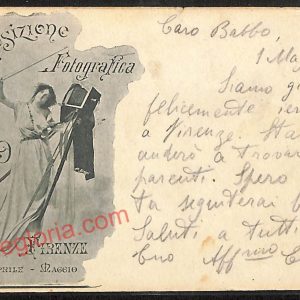 SIZIONE
Fotografica
FIRENZE
PRILE - MAGGIO
egtoria.com
Caro Babbo,
1 Mag
Siamo gi
felicemente ier
a Firenze. Sta
anderò a trovar
parenti. Spero
ta seguiterai b
Saluti a tutti
tuo Aff mo C